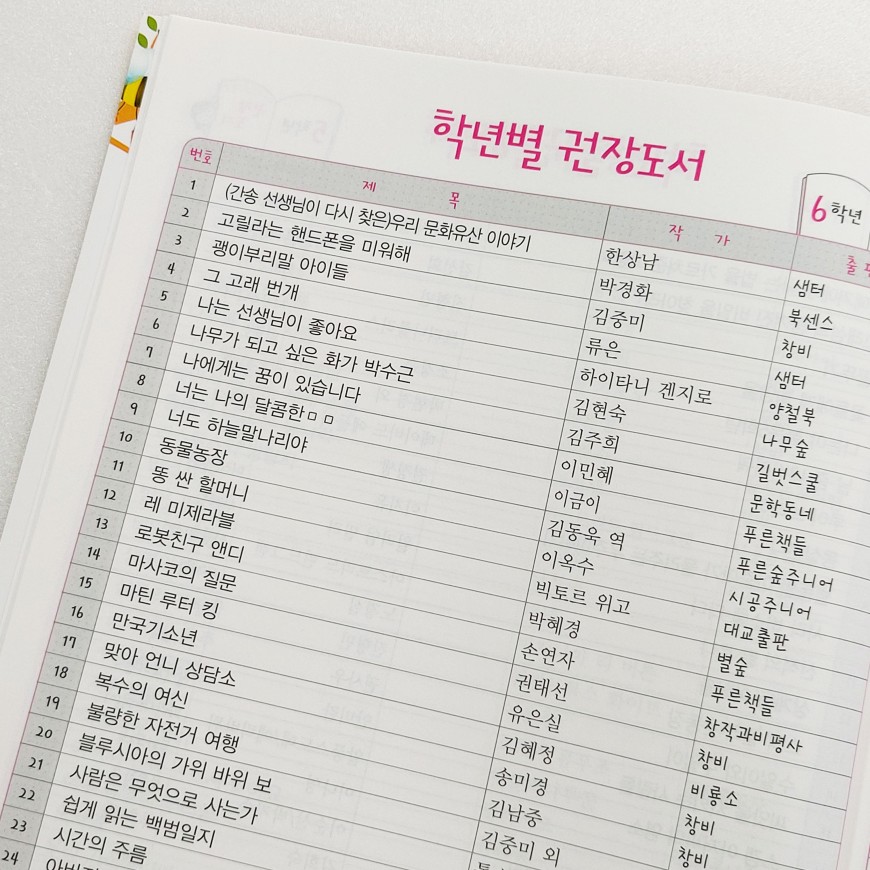 학년별 권장도서
6학년
번호 제 목 작 가
1 (간송 선생님이 다시 찾은)우리 문화유산 이야기 한상남 샘터
2 고릴라는 핸드폰을 미워해 박경화 북센스
3 괭이부리말 아이들 김중미 창비
4 그 고래 번개 류은 샘터
5 나는 선생님이 좋아요 하이타니 겐지로 양철북
6 나무가 되고 싶은 화가 박수근 김현숙 나무숲
7 나에게는 꿈이 있습니다 김주희 길벗스쿨
8 너는 나의 달콤한ㅁㅁ 이민혜 문학동네
9 너도 하늘말나리야 이금이 푸른책들
10 동물농장 김동욱 역 푸른숲주니어
11 똥 싼 할머니 이옥수 시공주니어
12 레 미제라블 빅토르 위고 대교출판
13 로봇친구 앤디 박혜경 별숲
14 마사코의 질문 손연자 푸른책들
15 마틴 루터 킹 권태선 창작과비평사
16 만국기소년 유은실 창비
17 맞아 언니 상담소 김혜정 비룡소
18 복수의 여신 송미경 창비
19 불량한 자전거 여행 김남중 창비
20 블루시아의 가위 바위 보 김중미 외
21 사람은 무엇으로 사는가
22 쉽게 읽는 백범일지
23 시간의 주름
24